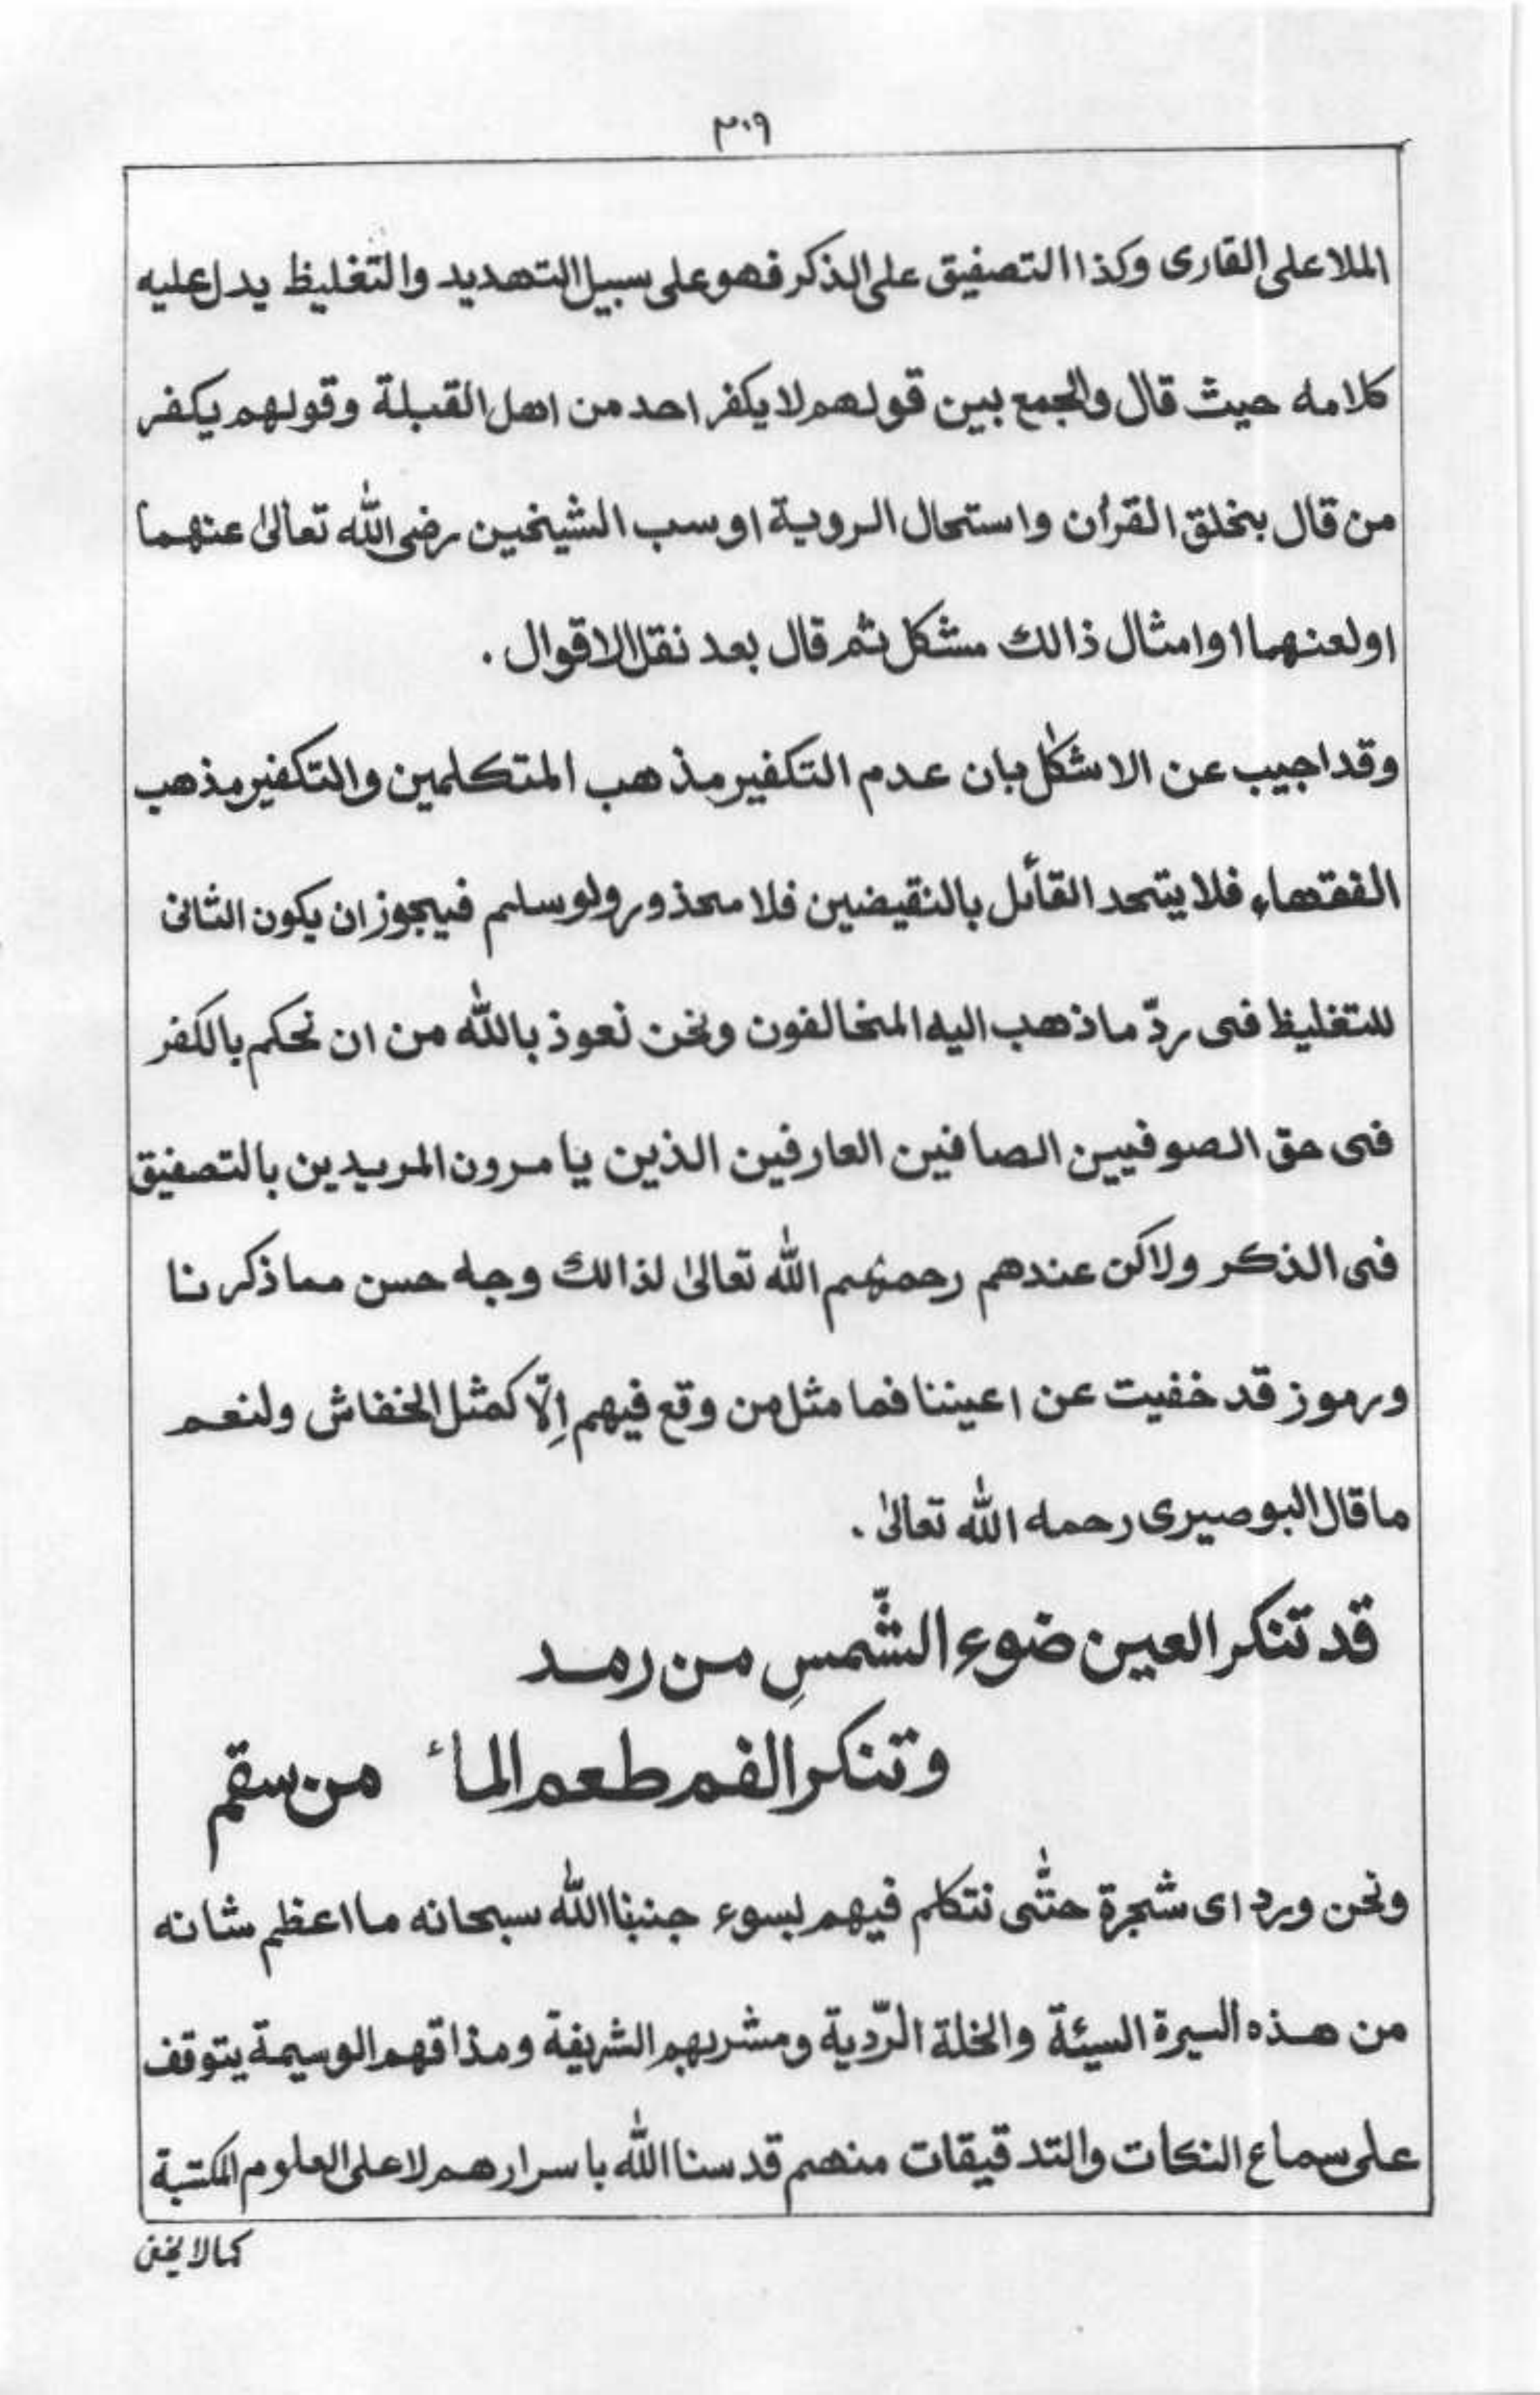 ٣٠٩
الملا على القارى وكذا التصفيق على الذكر فهو على سبيل التهديد والتغليظ يدل عليه
كلامه حيث قال والجمع بين قولهم لا يكفر احد من اهل القبلة وقولهم يكفر
من قال بخلق القرأن واستحال الروية او سب الشيخين رضى الله تعالىٰ عنهما
او لعنهما او امثال ذالك مشكل ثم قال بعد نقل الاقوال .
وقد اجيب عن الاشكٰل بان عدم التكفير مذهب المتكلمين والتكفير مذهب
الفقهاء فلا يتحد القأىل بالنقيضين فلا محذور ولو سلم فيجوز ان يكون الثانى
للتغليظ فى ردّ ما ذهب اليه المخالفون ونحن نعوذ بالله من ان نحكم بالكفر
فى حق الصوفيين الصافين العارفين الذين يامرون المريدين بالتصفيق
فى الذكر ولاكن عندهم رحمهم الله تعالىٰ لذالك وجه حسن مما ذكرنا
ورموز قد خفيت عن اعيننا فما مثل من وقع فيهم اِلّا كمثل الخفاش ولنعم
ما قال البوصيرى رحمه الله تعالىٰ .
قد تنكر العين ضوء الشّمسِ من رمد
وتنكر الفم طعم الماﺀ من سقم
ونحن ورد اى شجرة حتّٰى نتكلم فيهم بسوء جنبنا الله سبحانه ما اعظم شانه
من هذه السيرة السيئة والخلة الرّدية ومشربهم الشريفة ومذاقهم الوسيمة يتوقف
على سماع النكات والتدقيقات منهم قدسنا الله باسرارهم لا على العلوم المكتبة
كما لا يخفى